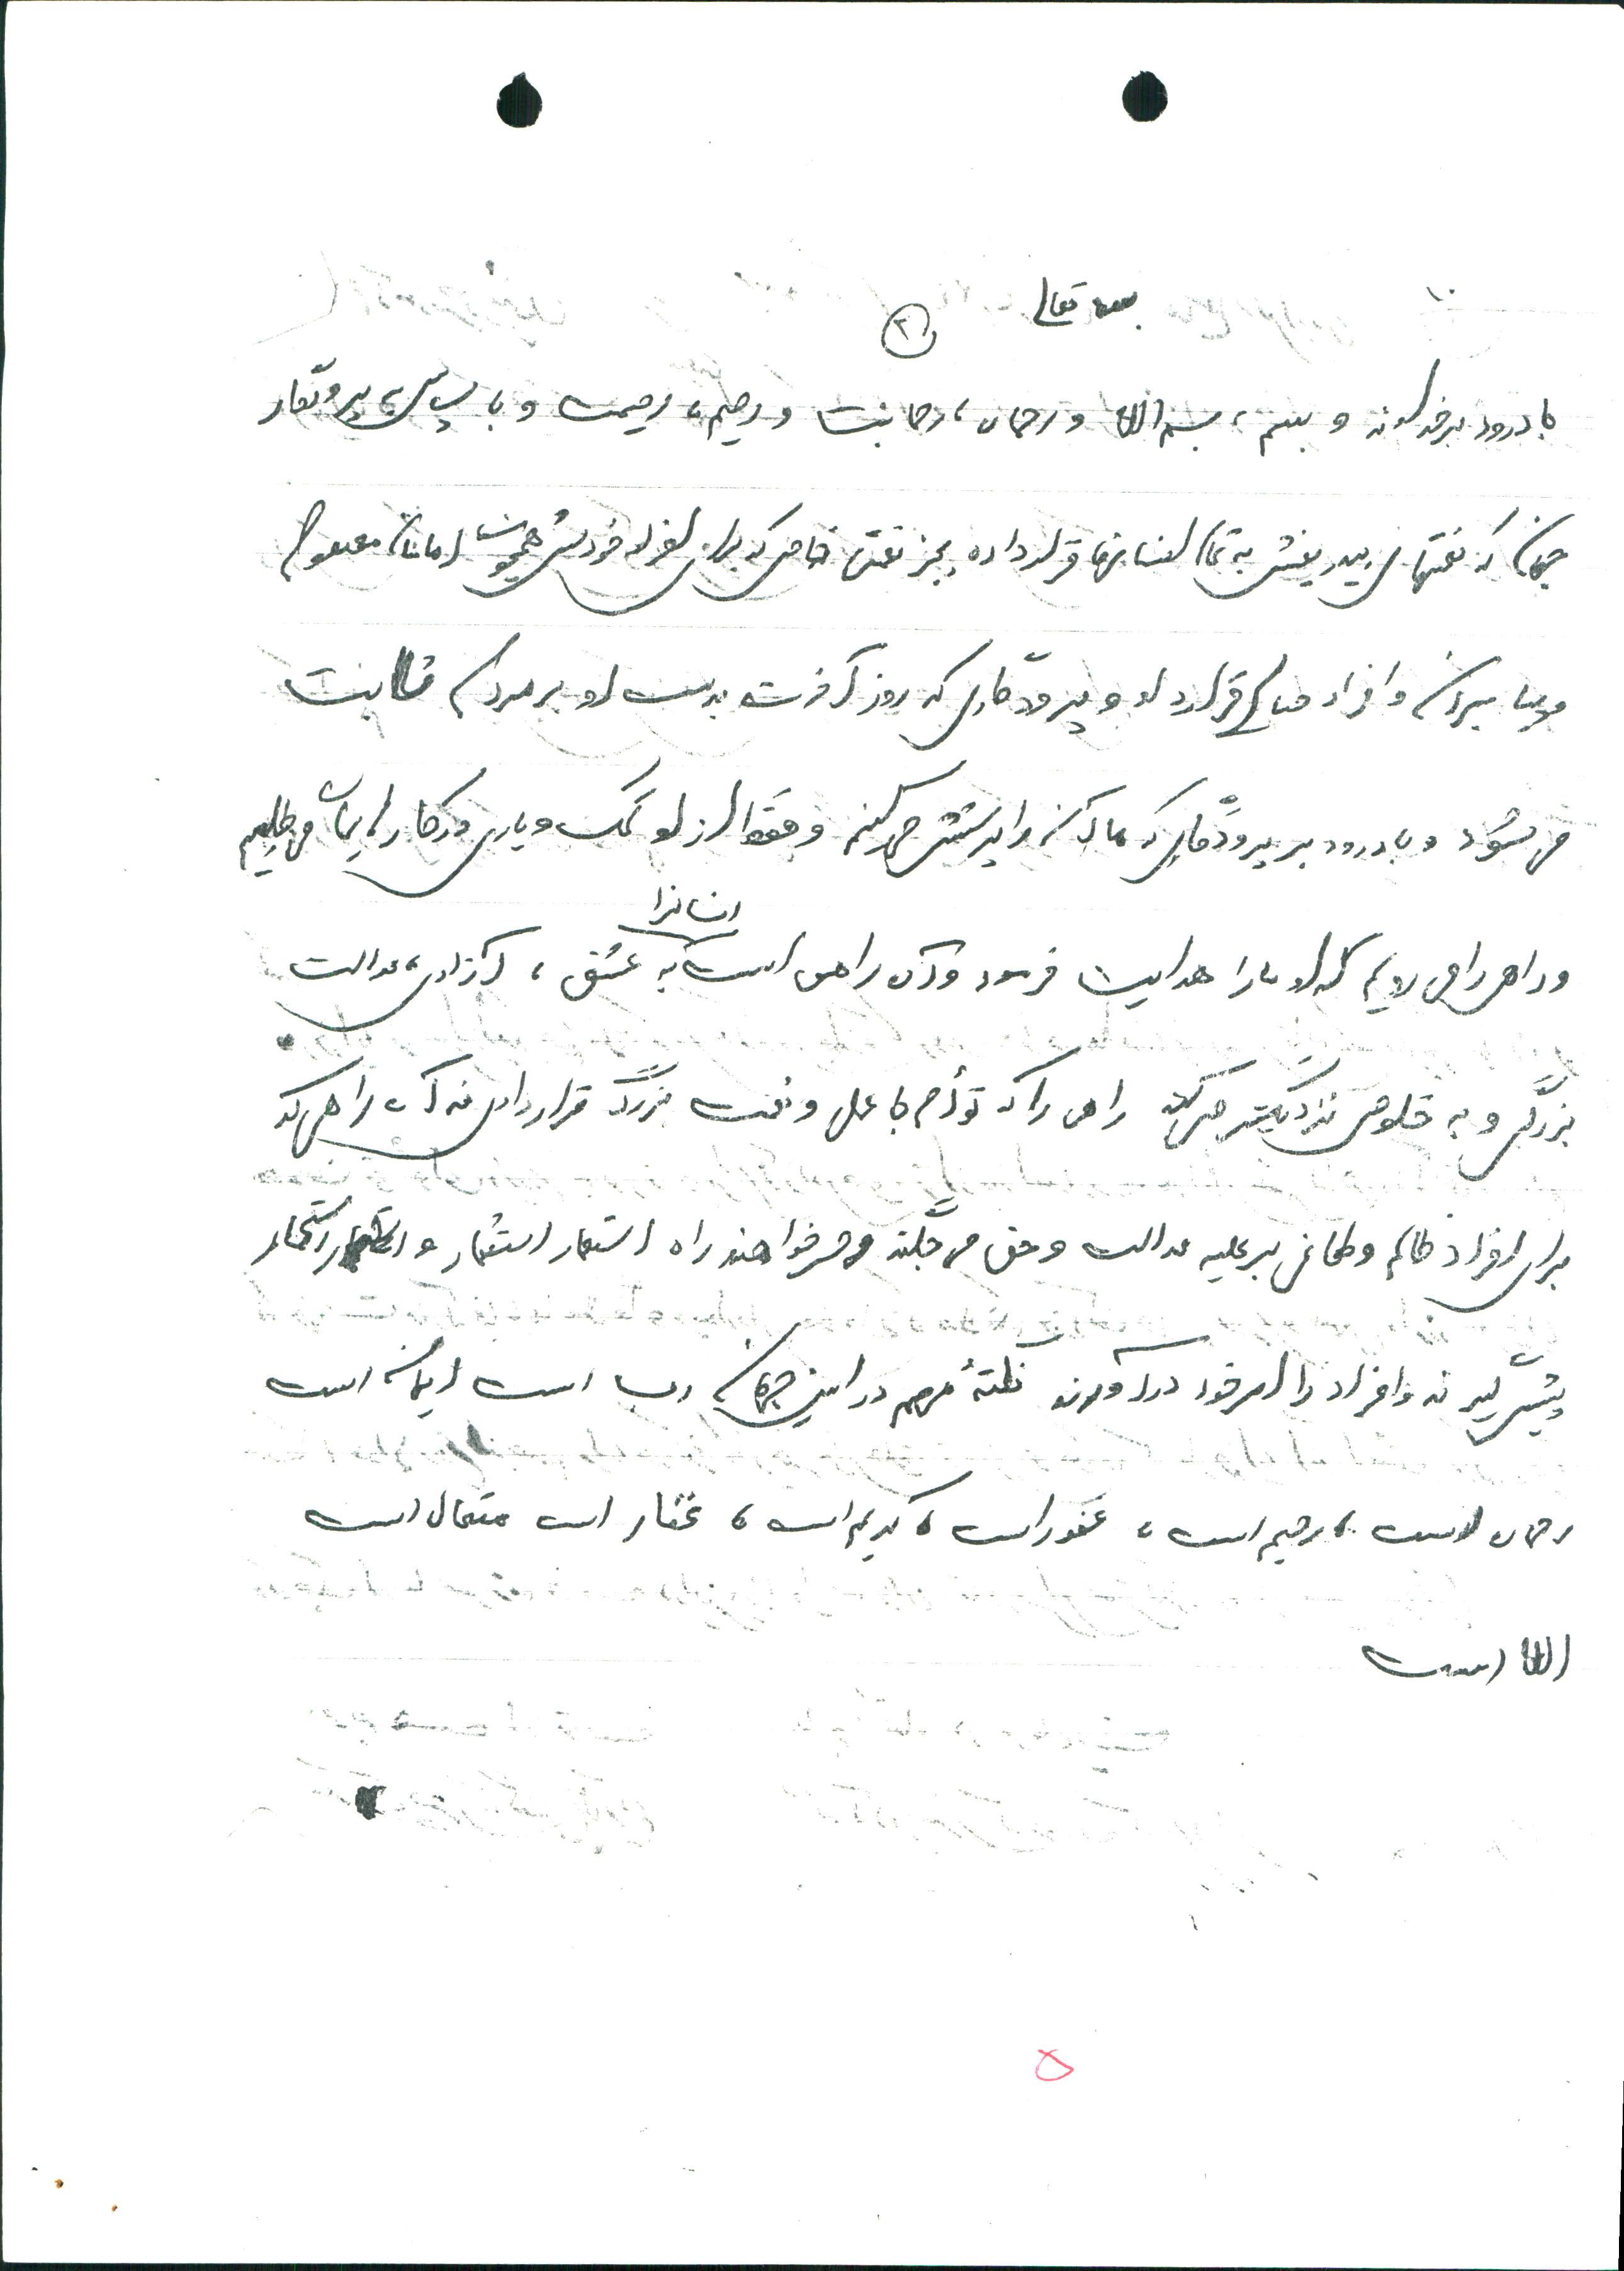 بسمه تعالی
۲
با درود بر خداوند و بسم، بسم الله و رحمان، رحمانیت و رحیم، رحیمیت و با سپاس، پروردگار
جهان که نعمتهای بیدریغش به تمام انسانها قرار داده بجز نعمتهای خاصی که برای افراد خودش همچون امامان معصوم
و پیامبران و افراد صالح قرارداد و پروردگاری که روز آخرت بدست او بر مردم
می‌شود و با درود بر پروردگاری که ما آن را پرستش می‌کنیم و فقط از او کمک و یاری در کارهایمان می‌طلبیم
و راهی را می رویم که او ما را هدایت فرمود و آن راهی است که انسانرا به عشق، آزادی، عدالت
بزرگی و به خلوص نزدیکتر می‌کند راهی را که توأم با عمل و نعمت بزرگ قرار دادی نه آن راهی که
برای افراد ظالم و طاغی بر علیه عدالت و حق می‌جنگند و می‌خواهند راه استعمار استثمار و استحمار
پیش گیرند و افراد را اسیر خود درآورند نکتهٔ مهم در این جهان رب است ایمان است
رحمان است، رحیم است، غفور است، کریم است، غفار است متعال است
الله است